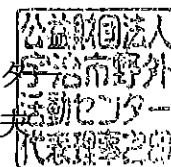 公益財団法人
宇治市野外
活動センター
代表理事
夫